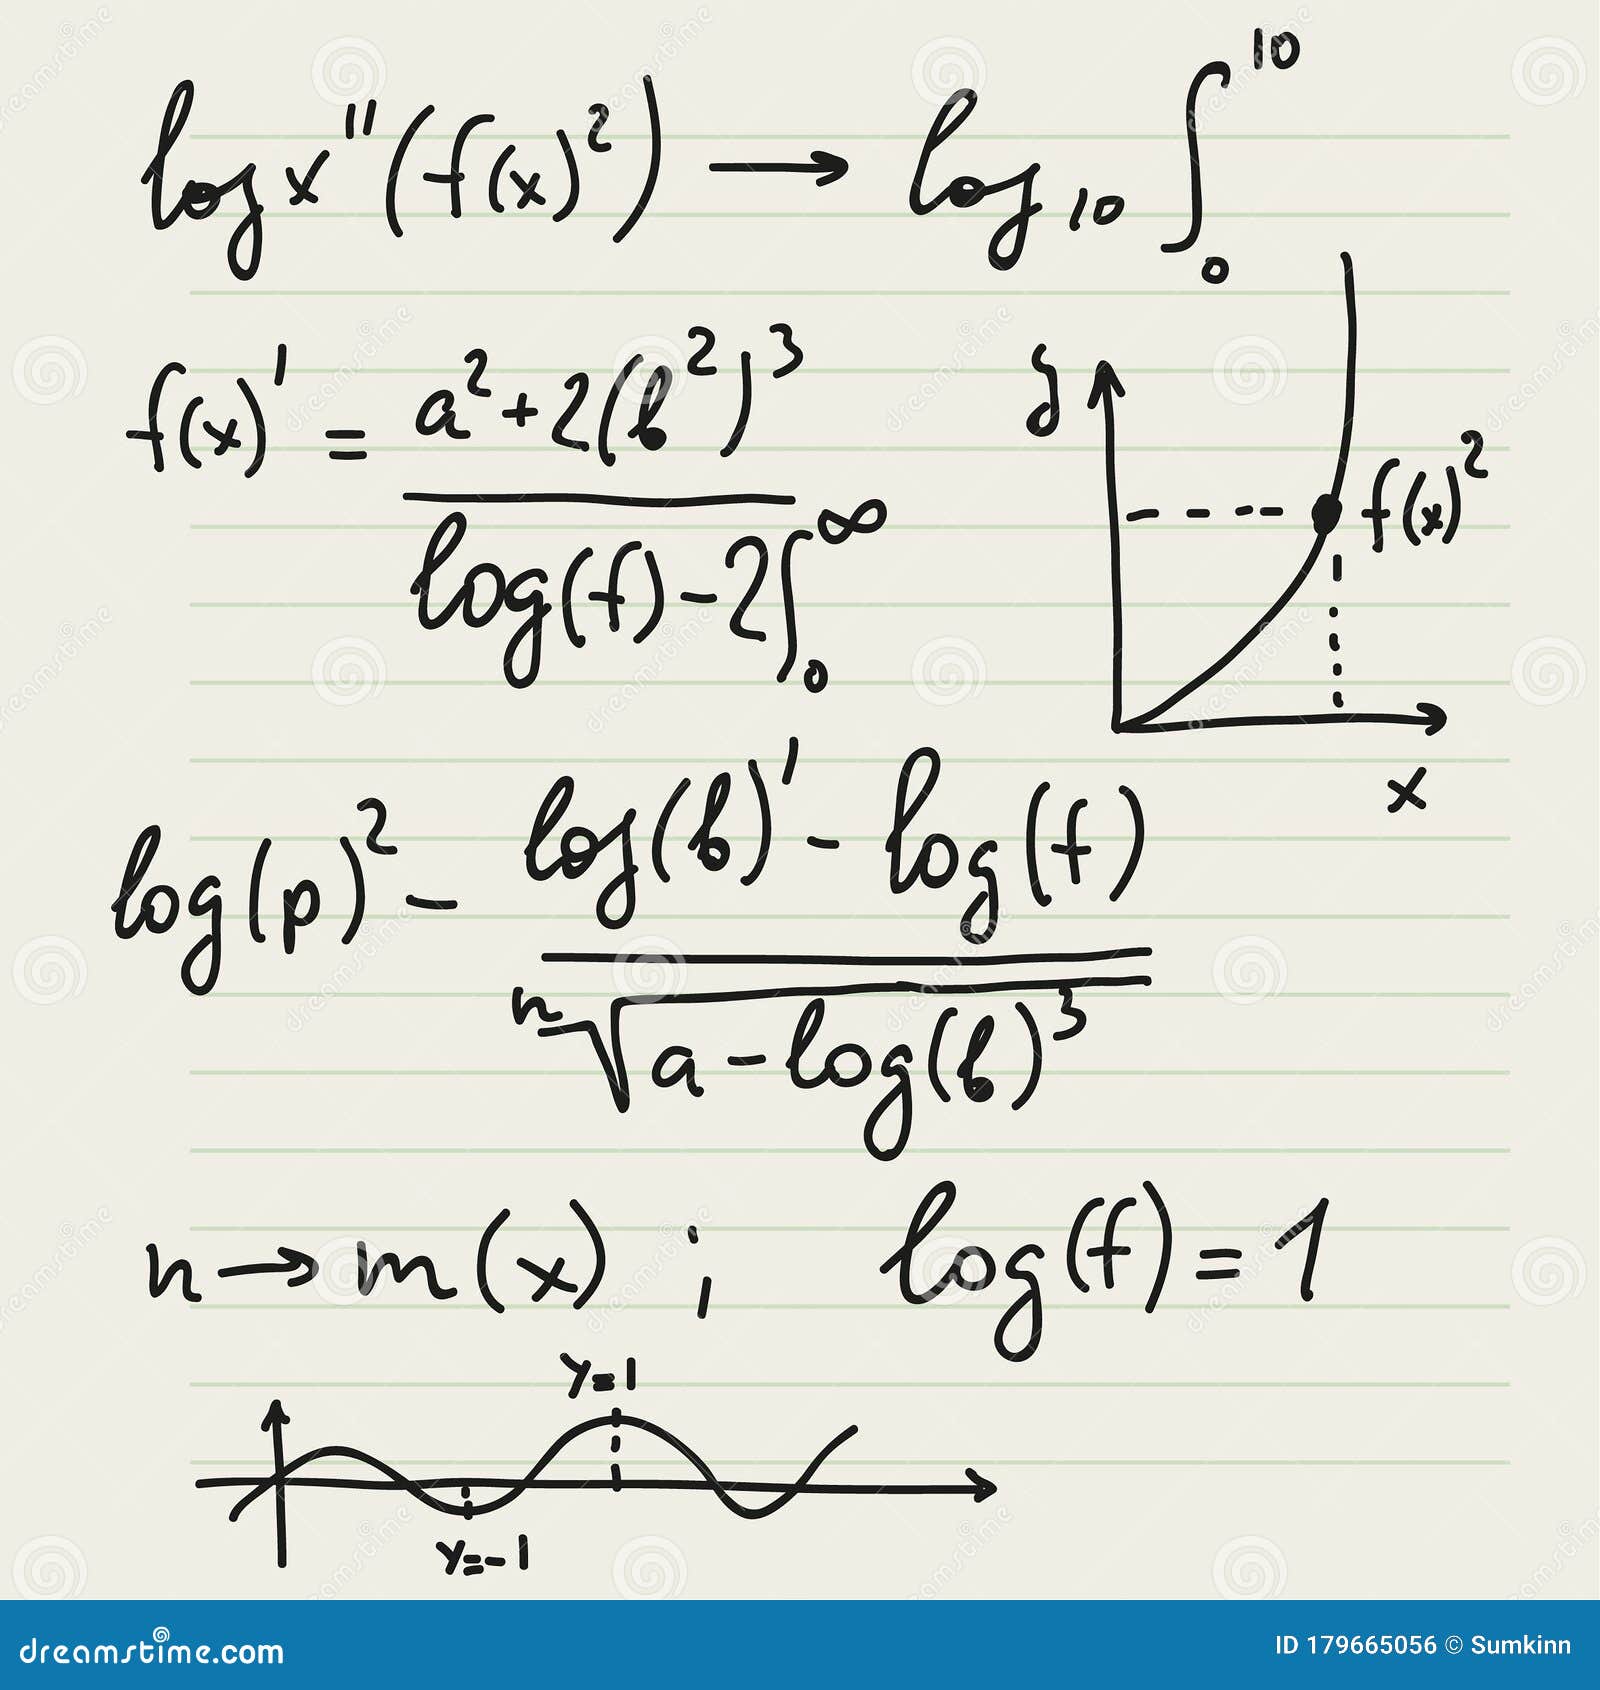 log x''(f(x)²) → log₁₀ ∫₀¹⁰
f(x)' = (a² + 2(b²)³) / (log(f) - 2∫₀^∞)
y
f(x)²
x
log(p)² - (log(b)' - log(f)) / ⁿ√(a - log(b)³)
n → m(x) ; log(f) = 1
y=1
y=-1
dreamstime.com
ID 179665056 © Sumkinn